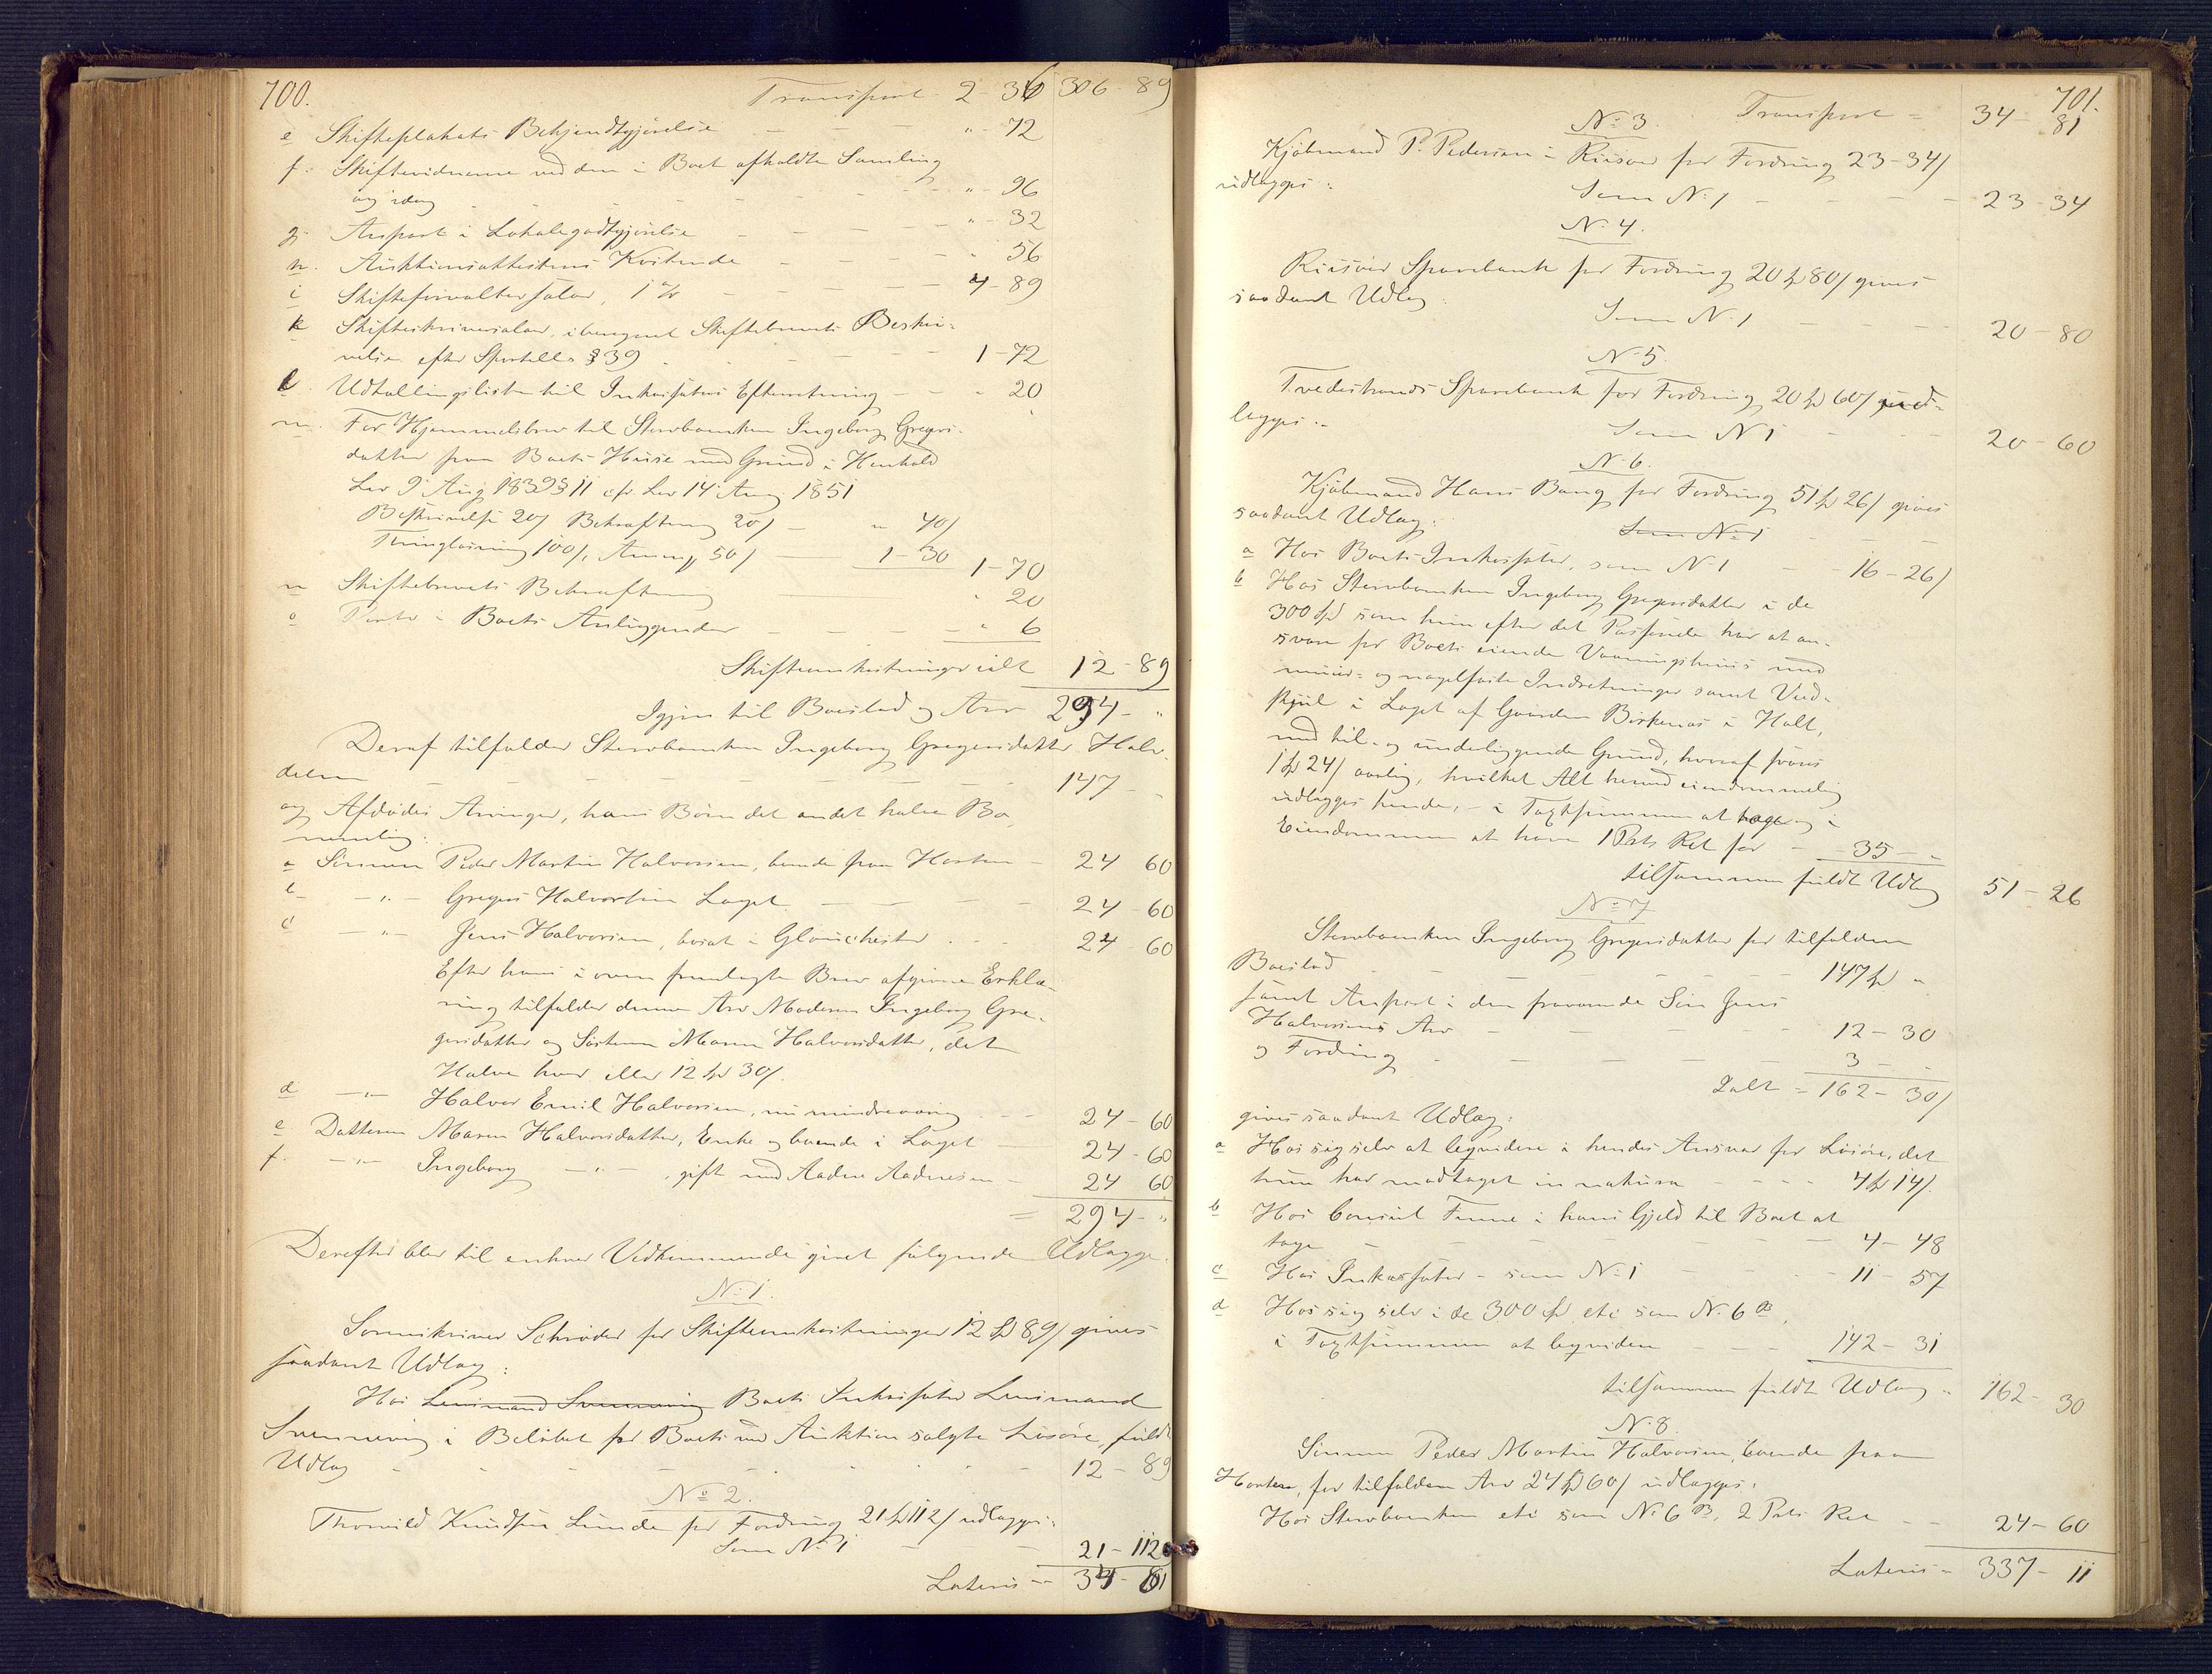 700.
Transport 2-36 306-89
e Skifteplakats Bekjendtgjørelse — — " - 72
f. Skiftevidnerne ved den i Boet afholdte Samling
og idag — — — " - 96
g. Anpart i Lokalegodtgjørelse — — — " - 32
h. Auktionsattestens Kostende — — — " 56
i Skifteforvaltersalar, 1 % — — — 4-89
k Skifteskriversalar, iberegnet Skiftebrevets Beskri-
velse efter Sportell. § 39 — — 1-72
l. Udtællingsliste til Inkassators Efterretning — - 20
m. For Hjemmelsbrev til Stervboenken Ingeborg Gregers-
datter paa Boets Huse med Grund i Henhold
Lov 9 Aug 1839 § 11 cfr Lov 14 Aug 1851
Beskrivelse 20/ Bekræftning 20/ — " 40/
Thinglæsning 100/, Anmp 50/ — 1-30 1-70
n Skiftebrevets Bekræftning — " 20
o Porto i Boets Anliggender — — — " 6
Skifteomkostninger ialt 12-89
Igjen til Boeslod og Arv 294- "
Deraf tilfalder Stervboenken Ingeborg Gregersdatter Halv-
delen — — — — 147 - -
og Afdødes Arvinger, hans Børn det andet halve Bo
nemlig:
a Sønnen Peder Martin Halvorsen, boende paa Hosten 24 60
b — " — Gregers Halvorsen Laget — — — 24-60
c — " — Jens Halvorsen, bosat i Glouchester . . . 24-60
Efter hans i oven fremlagte Brev afgivne Erklæ-
ring tilfalder denne Arv Moderen Ingeborg Gre-
gersdatter og Søsteren Maren Halvorsdatter, det
Halve hver eller 12 Spd 30/.
d — " — Halvor Emil Halvorsen, nu mindreaarig . . . 24-60
e Datteren Maren Halvorsdatter, Enke og boende i Laget — 24-60
f. — " — Ingeborg — " —, gift med Aadne Aadnesen — 24 60
= 294- "
Derefter blev til enhver Vedkommende givet følgende Udlægge
N: 1.
Sorenskriver Schrøder for Skifteomkostninger 12 Spd 89/ gives
saadant Udlæg:
Hos Lensmand Svenning Boets Inkassator Lensmand
Svenning i Beløbet for Boets ved Auktion solgte Løsøre, fuldt
Udlæg - - - - 12-89
No 2.
Thorvild Knudsen Lunde for Fordring 21 Spd 112/ udlægges:
Som N: 1 — — — 21-112
Lateris — 34-81
701.
Transport = 34-81
N: 3.
Kjøbmand P. Pedersen i Riisøer for Fordring 23-34/
udlægges:
Som N: 1 — — — 23-34
N: 4.
Riisøer Sparebank for Fordring 20 Spd 80/ gives
saadant Udlæg:
Som N: 1 — — — 20-80
N: 5.
Tvedestrands Sparebank for Fordring 20 Spd 60/ ud-
lægges:
Som N 1 — — — 20-60
N: 6.
Kjøbmand Hans Bang for Fordring 51 Spd 26/ gives
saadant Udlæg:
Som N: 1
a Hos Boets Inkassator, som N: 1 — — 16-26/
b Hos Stervboenken Ingeborg Gregersdatter i de
300 Spd som hun efter det Passerede har at an-
svare for Boets eiende Vaaningshuus med
muur- og nagelfaste Indretninger samt Ved-
skjul i Laget af Gaarden Birkenæs i Holt,
med til- og underliggende Grund, hvoraf svares
1 Spd 24/ aarlig, hvilket Alt herved eiendommelig
udlægges hende, - i Taxtsummen at tage og i
Eiendommen at have 1 Pts Ret for — 35 - "
tilsammen fuldt Udlæg 51-26
N: 7
Stervboenken Ingeborg Gregersdatter for tilfalden
Boeslod — — — — 147 Spd "
samt Anpart i den fraværende Søn Jens
Halvorsens Arv — — — 12-30
og Fordring — — — 3 - -
Ialt = 162-30/
gives saadant Udlæg:
a Hos sig selv at leqvidere i hendes Ansvar for Løsøre, det
hun har modtaget in natura — — - - 4 Spd 14/.
b Hos Consul Finne i hans Gjæld til Boet at
tage — — — — 4-48
c Hos Inkassator - som N: 1 — — 11-57
d Hos sig selv i de 300 Spd etc som N: 6 B,
i Taxtsummen at leqvidere — — - 142-31
tilsammen fuldt Udlæg " 162-30
N: 8.
Sønnen Peder Martin Halvorsen, boende paa
Hosten, for tilfalden Arv 24 Spd 60/ udlægges:
Hos Stervboenken etc som N: 6 B, 2 Pts Ret — 24-60
Lateris = 337-11